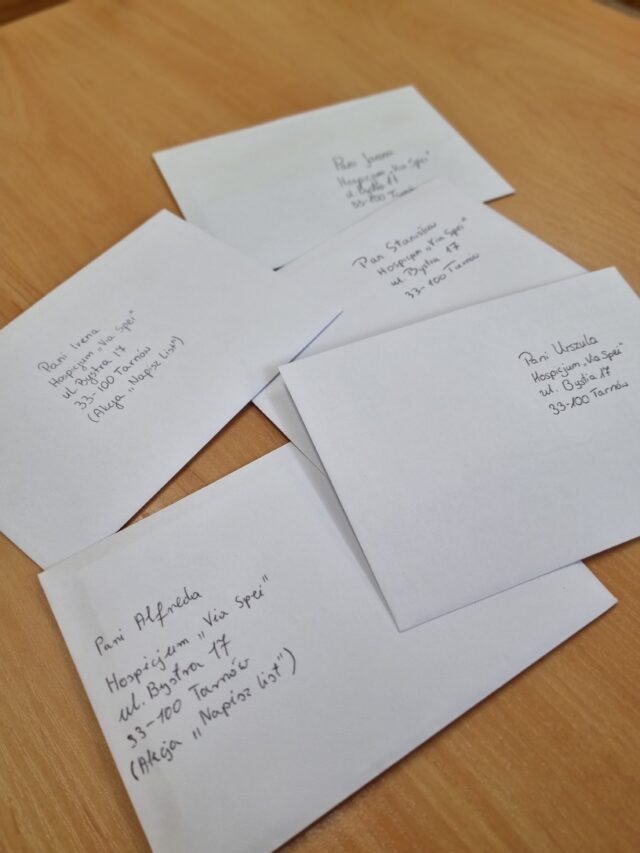 Pani Irena
Hospicjum „Via Spei"
ul. Bystra 17
33-100 Tarnów
Pan Stanisław
Hospicjum „Via Spei"
ul. Bystra 17
33-100 Tarnów
Pani Irena
Hospicjum „Via Spei"
ul. Bystra 17
33-100 Tarnów
(Akcja „Napisz list")
Pani Urszula
Hospicjum „Via Spei"
ul. Bystra 17
33-100 Tarnów
Pani Alfreda
Hospicjum „Via Spei"
ul. Bystra 17
33-100 Tarnów
(Akcja „Napisz list")